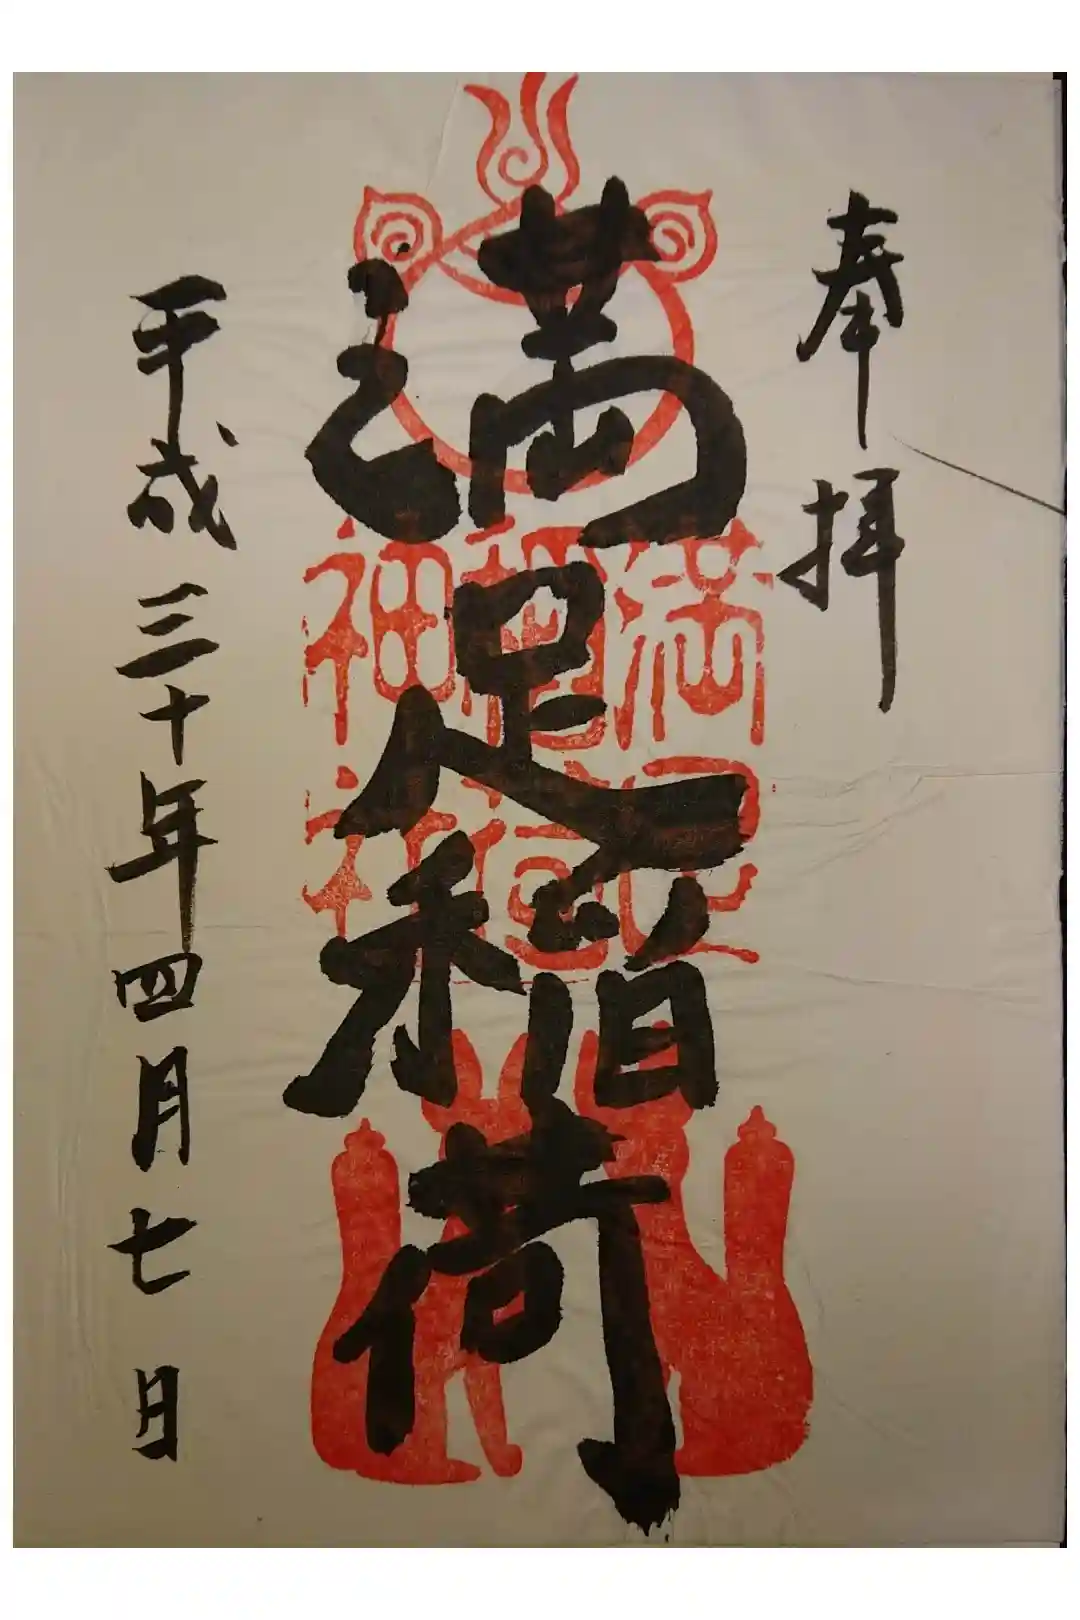 奉拝
満足稲荷
満足稲荷神社
平成三十年四月七日